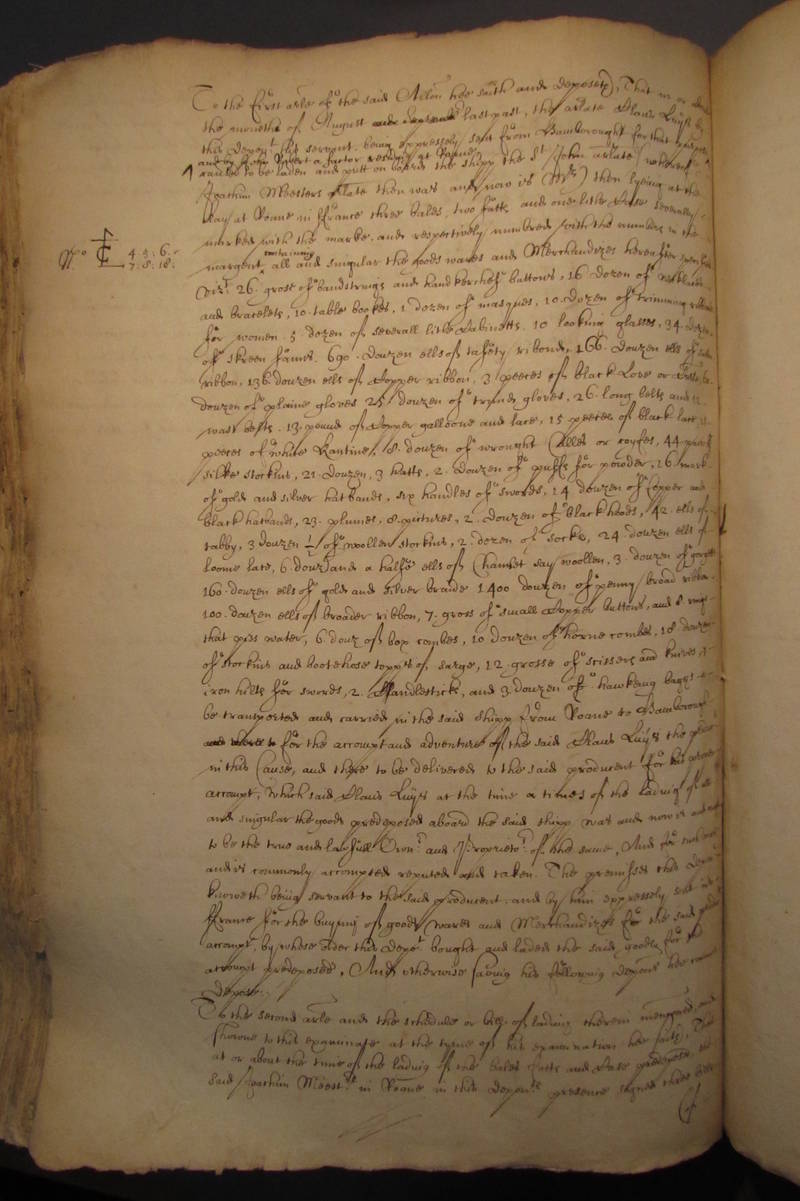 To the first arle of the said Allon hee saith and deposeth, That in or about
the moneth of August last past, the arlate Claus Luyts
this deponent his servant being expressely sent from Hamborought for that
and by a factor resideing at Roane
caused to be laden and putt on board the shipp the St John arlate (whereof
Joachim Meesters arlate then was and now is Mr) then lyeing at the
Kay at Roane in ffrance three bales, two fatts, and one little Case severally
marked with the marke, and respectively numbred with the numbers in the
margent, containing all and singular the goods wares and Merchandizes hereafter
No 4. 5. 6. 7. 8. 18.
vizt 26 grose of bandstrings and handkercheif buttons, 16 dozen of necklaces
and bracelets, 10. table bookes, 1. dozen of masques, 10. dozen of trimming
for women. 5. dozen of severall little Cabinetts. 10 looking glasses, 34. dozen
of skreen fanns. 690. douzen ells of tafety ribond, 166. douzen ells of
ribbon, 136 douzen ells of Copper ribbon, 3 peeces of black Love or
douzen of plaine gloves 25 douzen of gloves, 26. long belts and
wast belts. 13. pound of Copper galloone and lace, 15 peeces of black lace
peeces of white, 8. douzen of wrought Calles or coyfes, 44
silke stockins, 21. douzen, 3 hatts, 2. douzen of puffs for powder, 16 mark
of gold and silver hatbands, six handles of swords, 14 douzen of Copper and
black hatbands, 23. plumes, 8. pictures, 2. douzen of black hoods, 42. ells of
tabby, 3 douzen ½ of woollen stockins, 2. dozen of socks, 24. douzen ells of
loome lace, 6. douz and a halfe ells of Chamlet say woollen, 3. douzen of
160. douzen ells of gold and silver braide 1400 douzen of penny broad ribbon
100. douzen ells of broader ribbon, 7. gross of small Copper buttons, and 8 rings
that guds water, 6 douz of box combes, 10 douzen of horne combes, 18 douzen
of stockins and boothose topps of sarge, 12. grosse of scissers and knives,
iron hilts for swords, 2. Candlesticks, and 3. douzen of hawkeing baggs to
be transported and carried in the said shipp from Roane to Hamborough
for the accompt and adventure of the said Claus Luyts the
in this Cause, and there to be delivered to the said producent for his
accompt, Which said Claus Luyts at the time or times of the lading of all
and singular the goods predeposed aboard the said shipp was and now is
to be the true and lawfull Owner and Proprietor of the same, And for such was
and is commonly accompted reputed and taken. The premisses this deponent
knoweth being servant to the said producent, and by him expressely sent into
ffrance for the buying of goods wares and Merchandizes for the said
accompt, by whose order this depot bought and laded the said goods for the
accompt predeposed, And otherwise saving his following deposition hee cannot
depose.
To the second arle and the schedule or bill of lading therein mentioned, and
showne to this examinate at the time of his examination hee saith, That
at or about the time of the lading of the bales fatts and Case predeposed, the
said Joachim Meestrs in Roane in this deponts presence signed three bills
of